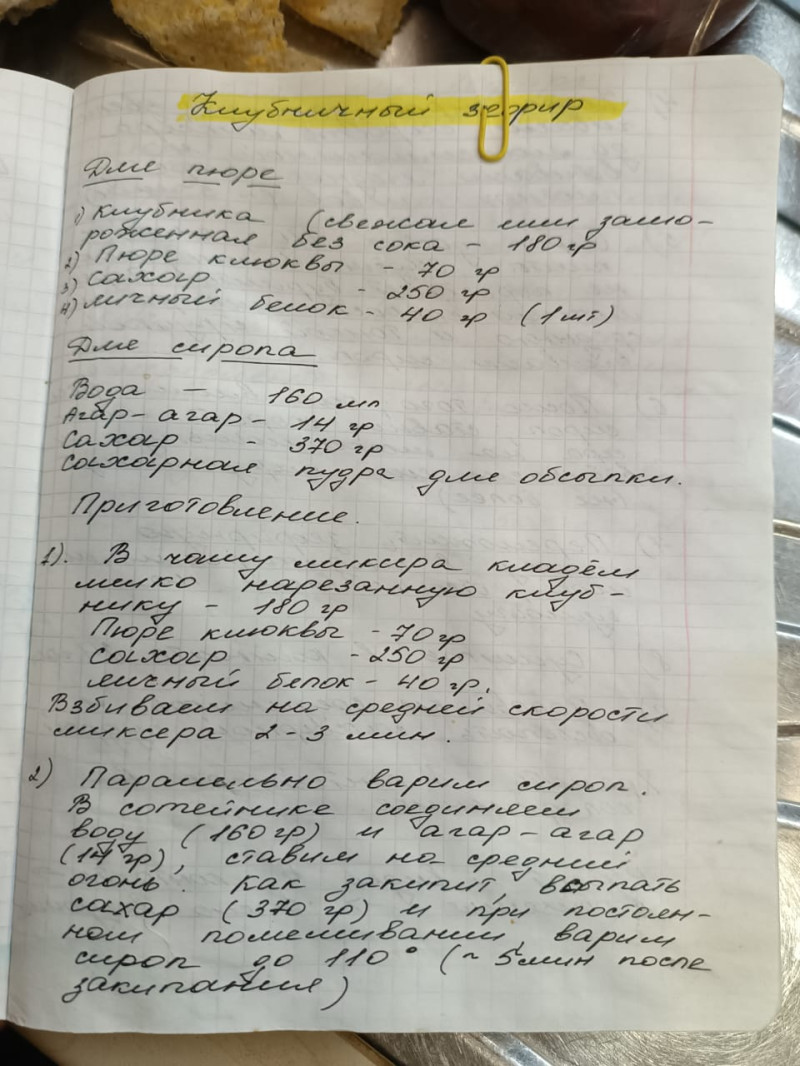 Клубничный зефир
Для пюре
1) Клубника (свежая или замо-
роженная без сока - 180 гр
2) Пюре клюквы - 70 гр
3) Сахар - 250 гр
4) Яичный белок - 40 гр (1 шт)
Для сиропа
Вода - 160 мл
Агар-агар - 14 гр
Сахар - 370 гр
Сахарная пудра для обсыпки.
Приготовление.
1). В чашу миксера кладём
мелко нарезанную клуб-
нику - 180 гр
Пюре клюквы - 70 гр
Сахар - 250 гр
Яичный белок - 40 гр.
Взбиваем на средней скорости
миксера 2-3 мин.
2) Паралельно варим сироп.
В сотейнике соединяем
воду (160 гр) и агар-агар
(14 гр), ставим на средний
огонь. Как закипит, всыпать
сахар (370 гр) и при постоян-
ном помешивании, варим
сироп до 110° (~ 5 мин после
закипания)